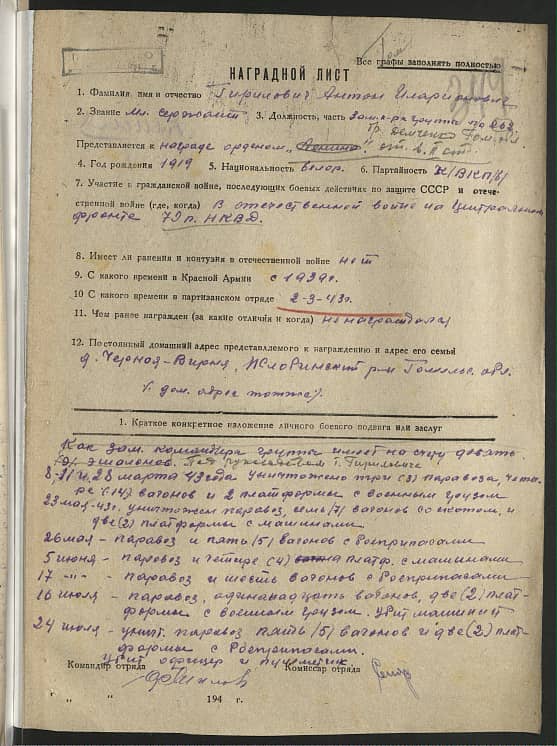 Все графы заполнять полностью
НАГРАДНОЙ ЛИСТ
1. Фамилия имя и отчество Гирилович Антон Иларионович
2. Звание мл. сержант 3. Должность, часть Зам. к-ра группы
Представляется к награде орденом „Ленина"
4. Год рождения 1919 5. Национальность белор. 6. Партийность К/ВКП/б/
7. Участие в гражданской войне, последующих боевых действиях по защите СССР и отече-
ственной войне (где, когда) В отечественной войне на Центральном
фронте НКВД.
8. Имеет ли ранения и контузия в отечественной войне нет
9. С какого времени в Красной Армии с 1939г.
10 С какого времени в партизанском отряде 2-3-43г.
11. Чем ранее награжден (за какие отличия и когда) не награждался
12. Постоянный домашний адрес представляемого к награждению и адрес его семьи
д. Черная-Вирня, Жлобинский р-н Гомельс. обл.
дом. адрес тот же
1. Краткое конкретное изложение личного боевого подвига или заслуг
Как зам. командира группы имеет на счету девять
(9) эшелонов. Под руководством т. Гириловича
марта 43 года уничтожено три (3) паравоза, четы-
ре (14) вагонов и 2 платформы с военным грузом
23 мая-43г. уничтожен паравоз, семь /7/ вагонов со скотом, и
две (2) платформы с машинами
26 мая - паравоз и пять /5/ вагонов с боеприпасами
5 июня - паровоз и четыре (4) платф. с машинами
17 -„- - паравоз и шесть вагонов с боеприпасами
16 июля - паравоз, одиннадцать вагонов, две (2) плат-
формы с военным грузом. Убит машинист
24 июля - уничт. паровоз пять /5/ вагонов и две (2) плат-
формы с боеприпасами.
Убит офицер и пулеметчик.
Командир отряда Комиссар отряда
„ „ 194 г.